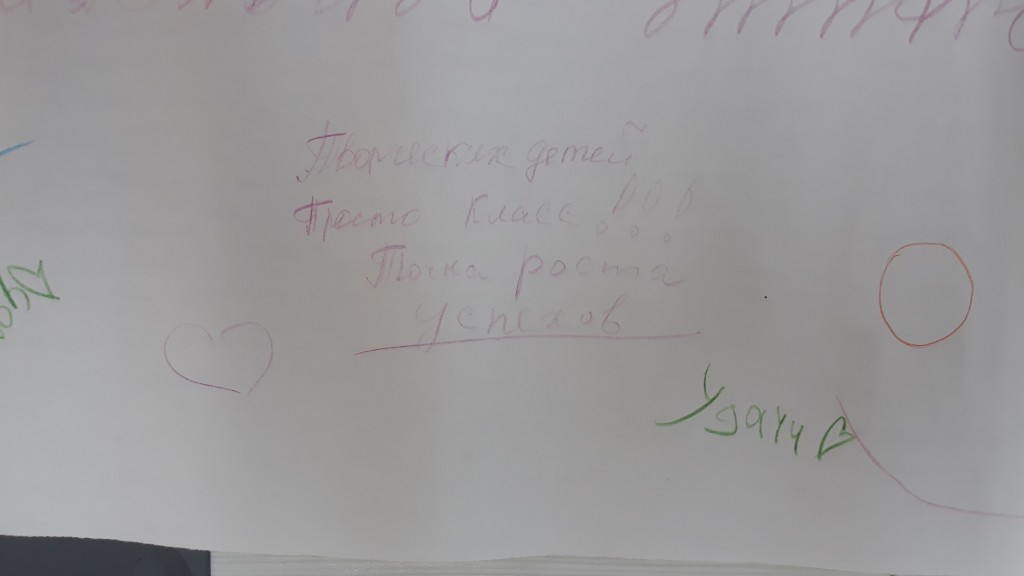 Творческих детей
Просто класс!!!
Точка роста
успехов
Удачи